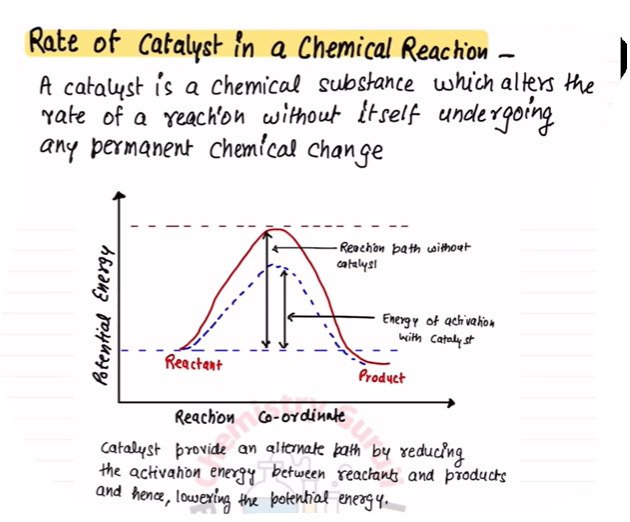 Rate of Catalyst in a Chemical Reaction –
A catalyst is a chemical substance which alters the
rate of a reaction without itself undergoing
any permanent chemical change
Potential Energy
Reaction path without
catalyst
Energy of activation
with Catalyst
Reactant
Product
Reaction Co-ordinate
Catalyst provide an alternate path by reducing
the activation energy between reactants and products
and hence, lowering the potential energy.
Chemistry Guruji